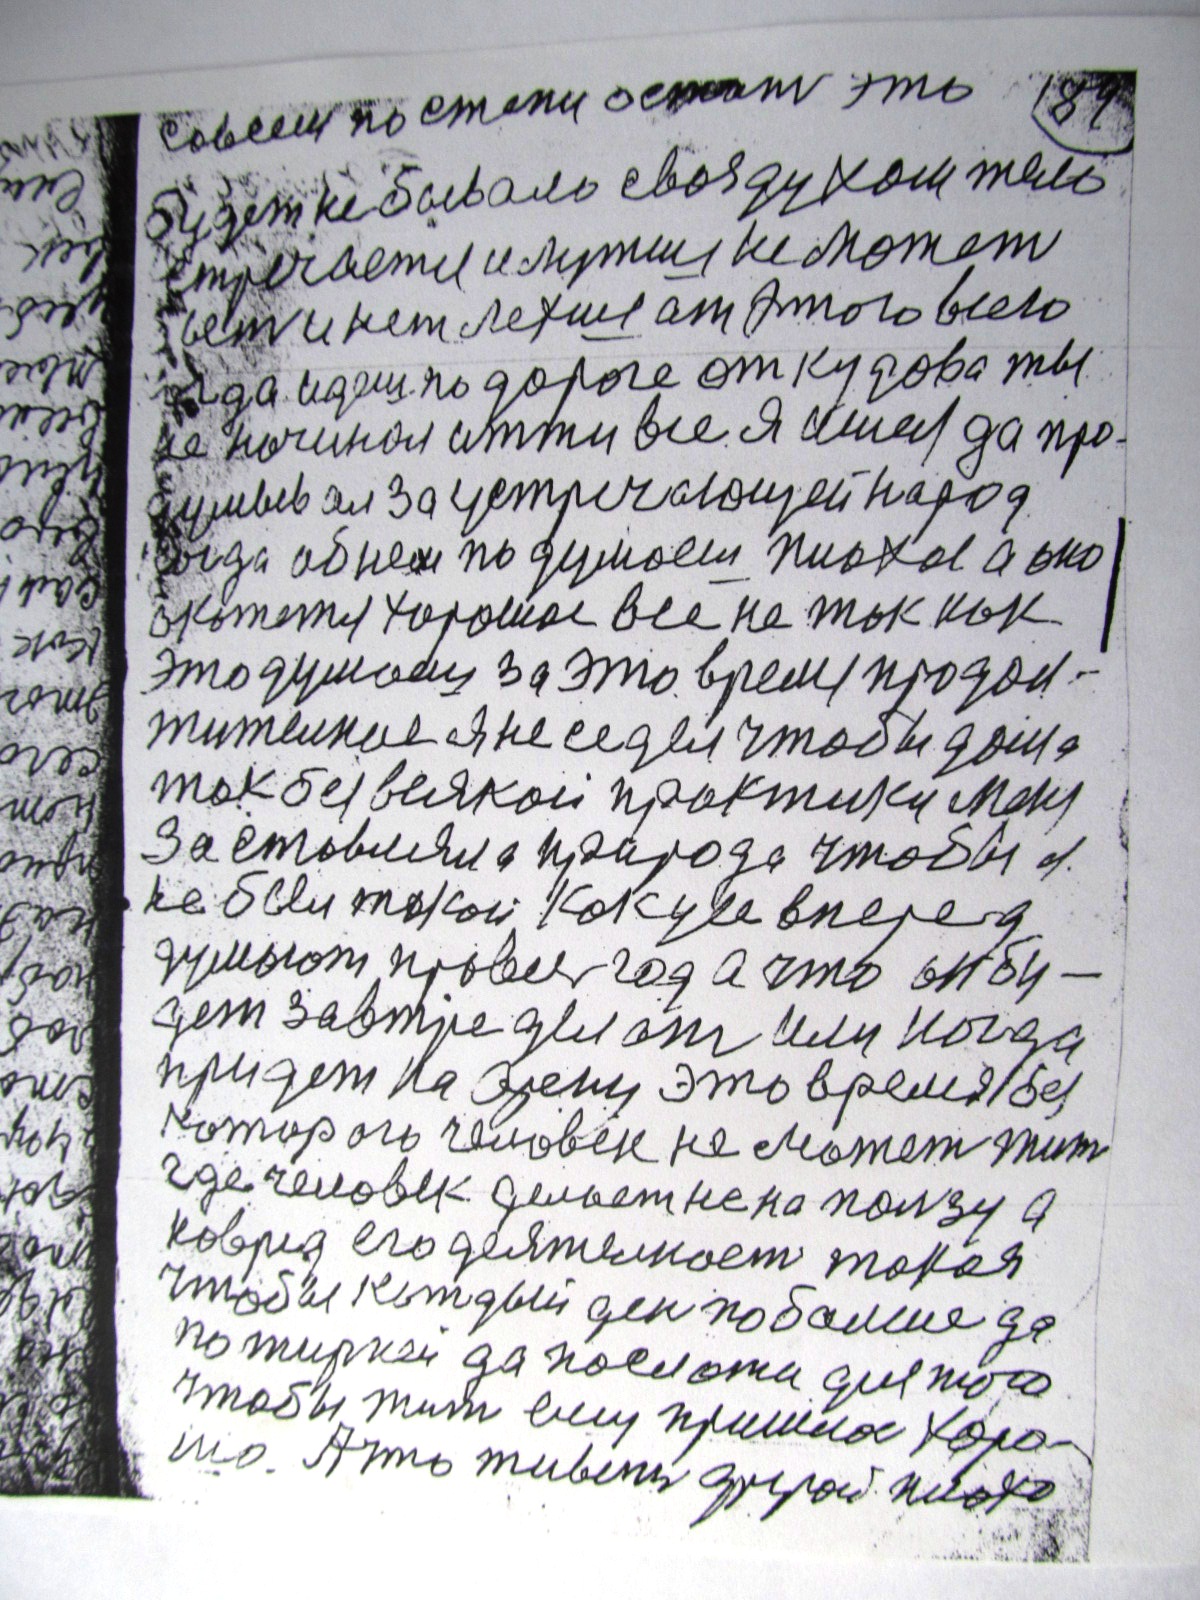 совсем по степи 89
будет небывало своя духом тело
стречается и лутши не может
и нет легши от этого всего
да идеш по дороге откудова ты
не начинал итти все я ишел да про-
думывал за устречающей народ
когда об нем подумаеш плохое а оно
окажется хорошое все не так как
это думаеш за это время продол-
жителное я не седел чтобы дома
так без всякой практики меня
заставляла природа чтобы я
не был такой как усе вперед
думают провел год а что он бу-
дет завтре делат или когда
придет на это время без
которого человек не может жит
где человек делает не на ползу а
на вред его деятелност такая
чтобы каждый ден поболше да
пожирней да послаже для того
чтобы жит ему пришлос хоро-
шо. А то живет другой плохо